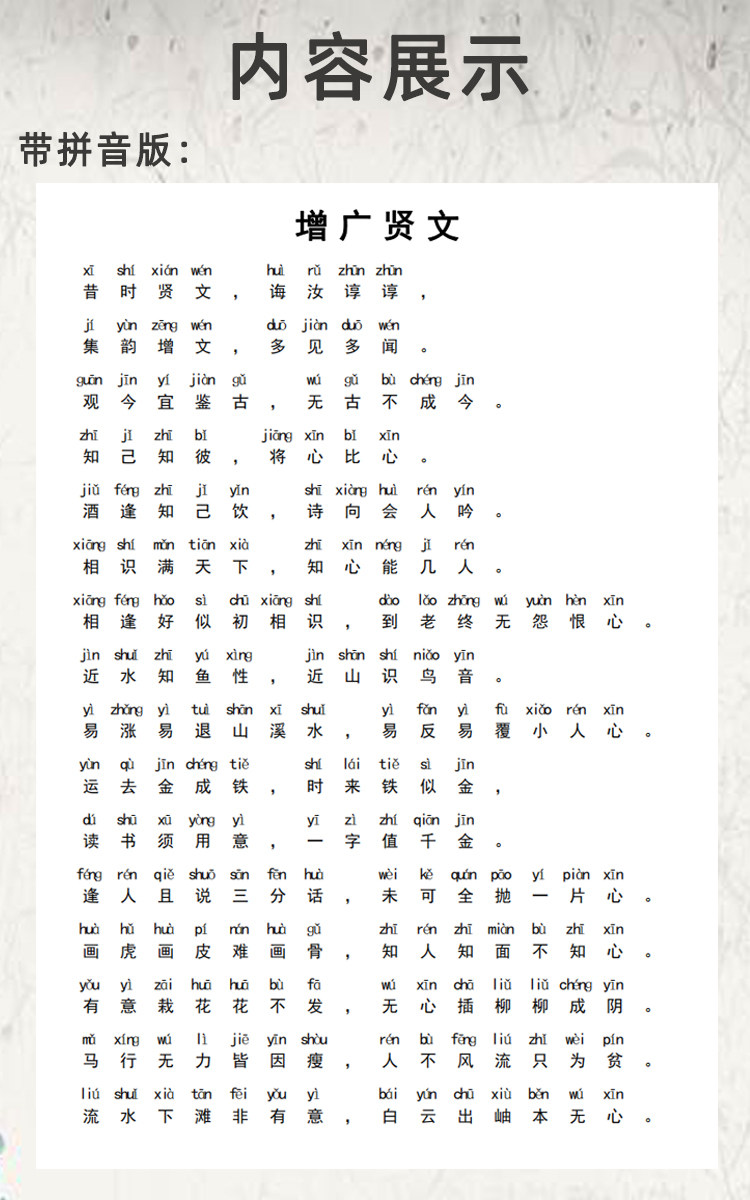 内容展示
带拼音版：
增广贤文
xī shí xián wén huì rǔ zhūn zhūn
昔时贤文，诲汝谆谆，
jí yùn zēng wén duō jiàn duō wén
集韵增文，多见多闻。
guān jīn yí jiàn gǔ wú gǔ bù chéng jīn
观今宜鉴古，无古不成今。
zhī jǐ zhī bǐ jiāng xīn bǐ xīn
知己知彼，将心比心。
jiǔ féng zhī jǐ yǐn shī xiàng huì rén yín
酒逢知己饮，诗向会人吟。
xiāng shí mǎn tiān xià zhī xīn néng jǐ rén
相识满天下，知心能几人。
xiāng féng hǎo sì chū xiāng shí dào lǎo zhōng wú yuàn hèn xīn
相逢好似初相识，到老终无怨恨心。
jìn shuǐ zhī yú xìng jìn shān shí niǎo yīn
近水知鱼性，近山识鸟音。
yì zhǎng yì tuì shān xī shuǐ yì fǎn yì fù xiǎo rén xīn
易涨易退山溪水，易反易覆小人心。
yùn qù jīn chéng tiě shí lái tiě sì jīn
运去金成铁，时来铁似金，
dú shū xū yòng yì yī zì zhí qiān jīn
读书须用意，一字值千金。
féng rén qiě shuō sān fēn huà wèi kě quán pāo yí piàn xīn
逢人且说三分话，未可全抛一片心。
huà hǔ huà pí nán huà gǔ zhī rén zhī miàn bù zhī xīn
画虎画皮难画骨，知人知面不知心。
yǒu yì zāi huā huā bù fā wú xīn chā liǔ liǔ chéng yīn
有意栽花花不发，无心插柳柳成阴。
mǎ xíng wú lì jiē yīn shòu rén bù fēng liú zhǐ wèi pín
马行无力皆因瘦，人不风流只为贫。
liú shuǐ xià tān fēi yǒu yì bái yún chū xiù běn wú xīn
流水下滩非有意，白云出岫本无心。